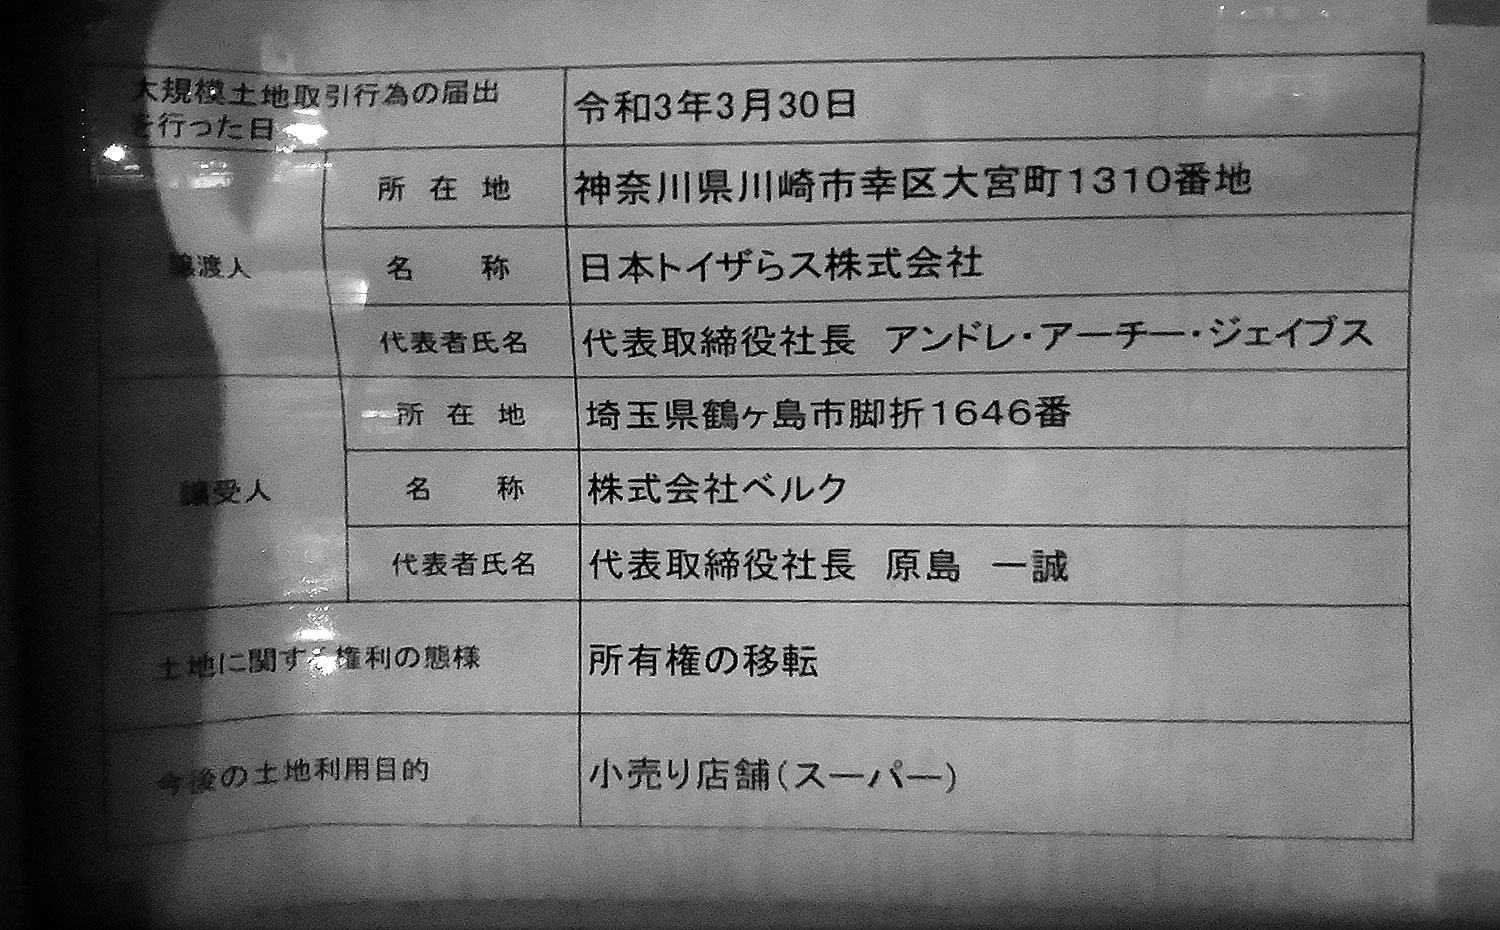 大規模土地取引行為の届出
を行った日
令和3年3月30日
譲渡人
所在地
神奈川県川崎市幸区大宮町1310番地
名称
日本トイザらス株式会社
代表者氏名
代表取締役社長 アンドレ・アーチー・ジェイブス
譲受人
所在地
埼玉県鶴ヶ島市脚折1646番
名称
株式会社ベルク
代表者氏名
代表取締役社長 原島 一誠
土地に関する権利の態様
所有権の移転
今後の土地利用目的
小売り店舗(スーパー)